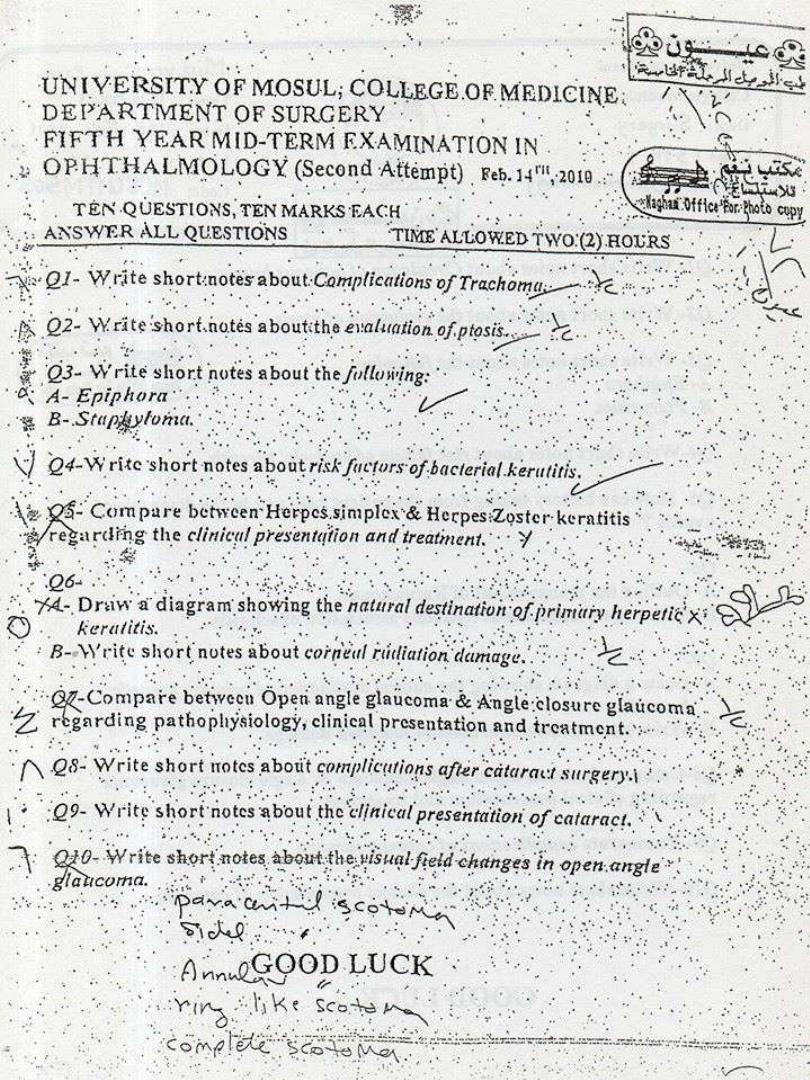 عيـــون
طب الموصل المرحلة الخامسة
UNIVERSITY OF MOSUL; COLLEGE OF MEDICINE
DEPARTMENT OF SURGERY
FIFTH YEAR MID-TERM EXAMINATION IN
OPHTHALMOLOGY (Second Attempt) Feb. 14TH, 2010
مكتب نغم
للاستنساخ
Nagham Office For Photo copy
TEN QUESTIONS, TEN MARKS EACH
ANSWER ALL QUESTIONS TIME ALLOWED TWO (2) HOURS
عيون
Q1- Write short notes about Complications of Trachoma.
Q2- Write short notes about the evaluation of ptosis.
Q3- Write short notes about the following:
A- Epiphora
B- Staphyloma.
Q4-Write short notes about risk factors of bacterial keratitis.
Q5- Compare between Herpes simplex & Herpes Zoster keratitis
regarding the clinical presentation and treatment.
Q6-
A- Draw a diagram showing the natural destination of primary herpetic
keratitis.
B- Write short notes about corneal radiation damage.
Q7-Compare between Open angle glaucoma & Angle closure glaucoma
regarding pathophysiology, clinical presentation and treatment.
Q8- Write short notes about complications after cataract surgery.
Q9- Write short notes about the clinical presentation of cataract.
Q10- Write short notes about the visual field changes in open angle
glaucoma.
paracentral scotoma
Sidel
Annular
GOOD LUCK
ring like scotoma
complete scotoma